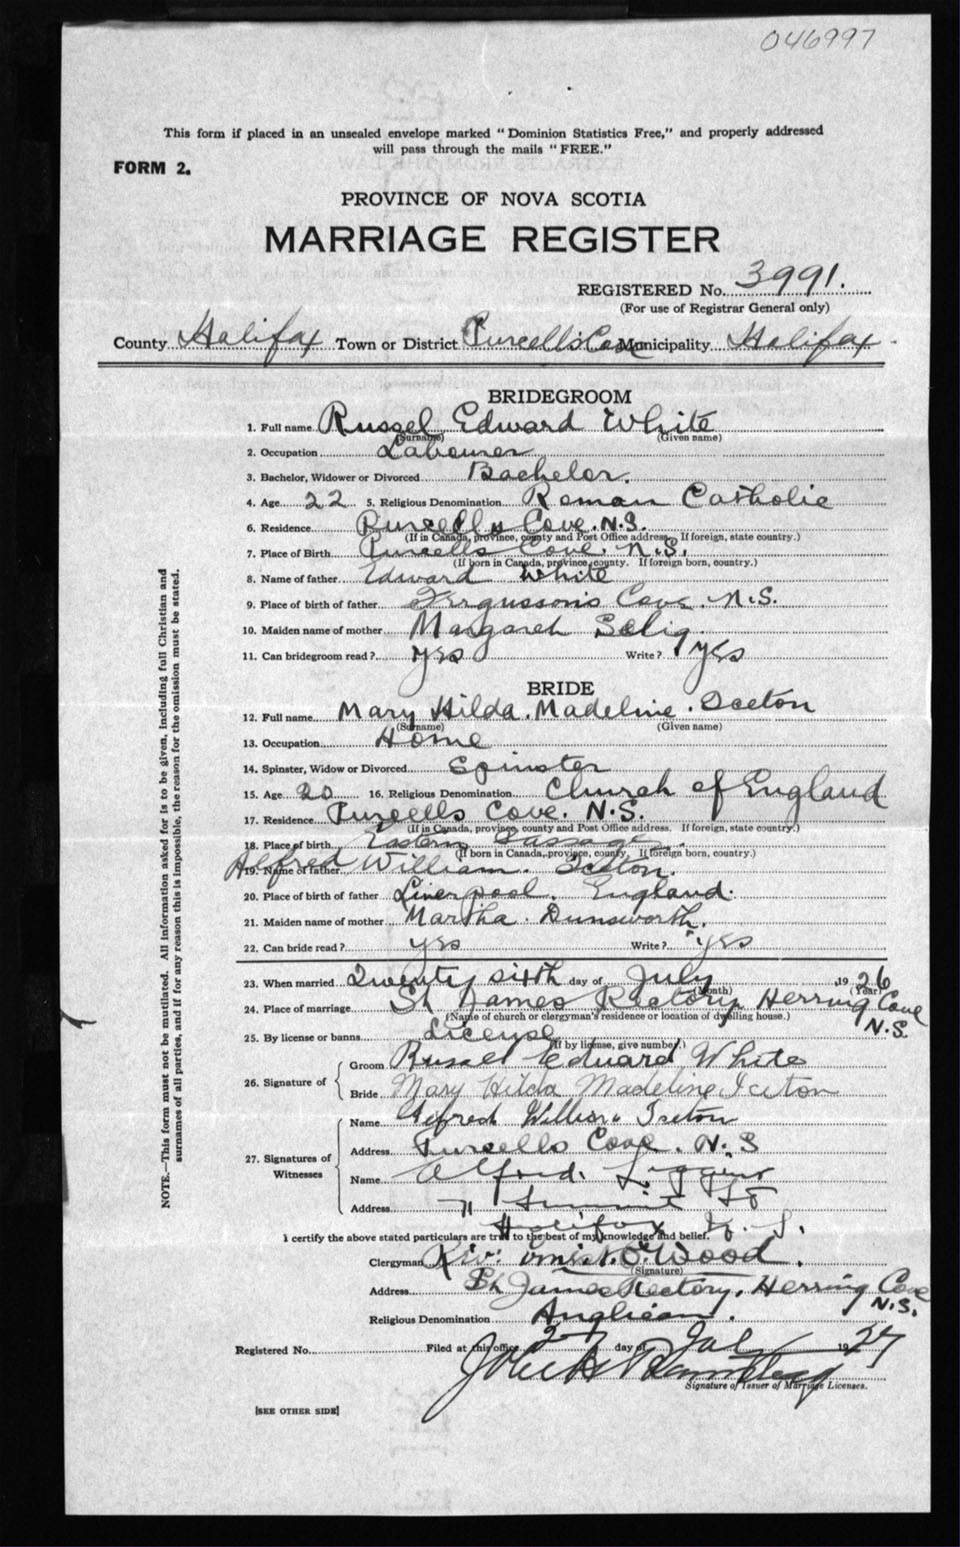 046997
This form if placed in an unsealed envelope marked "Dominion Statistics Free," and properly addressed
will pass through the mails "FREE."
FORM 2.
PROVINCE OF NOVA SCOTIA
MARRIAGE REGISTER
REGISTERED No. 3991.
(For use of Registrar General only)
County Halifax Town or District Purcells Cove Municipality Halifax
BRIDEGROOM
1. Full name Russel Edward White
(Surname) (Given name)
2. Occupation Labourer
3. Bachelor, Widower or Divorced Bachelor.
4. Age 22 5. Religious Denomination Roman Catholic
6. Residence Purcells Cove. N.S.
(If in Canada, province, county and Post Office address. If foreign, state country.)
7. Place of Birth Purcells Cove. N.S.
(If born in Canada, province, county. If foreign born, country.)
8. Name of father Edward White
9. Place of birth of father Fergusson's Cove. N.S.
10. Maiden name of mother Margaret Selig
11. Can bridegroom read? yes Write? yes
BRIDE
12. Full name Mary Hilda. Madeline. Iceton
(Surname) (Given name)
13. Occupation Home
14. Spinster, Widow or Divorced Spinster
15. Age 20 16. Religious Denomination Church of England
17. Residence Purcells Cove. N.S.
(If in Canada, province, county and Post Office address. If foreign, state country.)
18. Place of birth Eastern Passage.
(If born in Canada, province, county. If foreign born, country.)
19. Name of father Alfred William. Iceton.
20. Place of birth of father Liverpool. England.
21. Maiden name of mother Martha. Dunsworth.
22. Can bride read? yes Write? yes
23. When married Twenty sixth day of July 1926
(Month) (Year)
24. Place of marriage St James Rectory Herring Cove
N.S.
(Name of church or clergyman's residence or location of dwelling house.)
25. By license or banns License
(If by license, give number.)
26. Signature of Groom Russel Edward White
Bride Mary Hilda Madeline Iceton
27. Signatures of Witnesses Name Alfred William Iceton
Address Purcells Cove. N.S
Name Alfred.
Address 71 Summit St
Halifax N. S.
I certify the above stated particulars are true to the best of my knowledge and belief.
Clergyman Rev: Wood.
(Signature)
Address St James Rectory. Herring Cove
N.S.
Religious Denomination Anglican.
Registered No. Filed at this office 27 day of 1927
Signature of Issuer of Marriage Licenses.
[SEE OTHER SIDE]
NOTE.—This form must not be mutilated. All information asked for is to be given, including full Christian and
surnames of all parties, and if for any reason this is impossible, the reason for the omission must be stated.